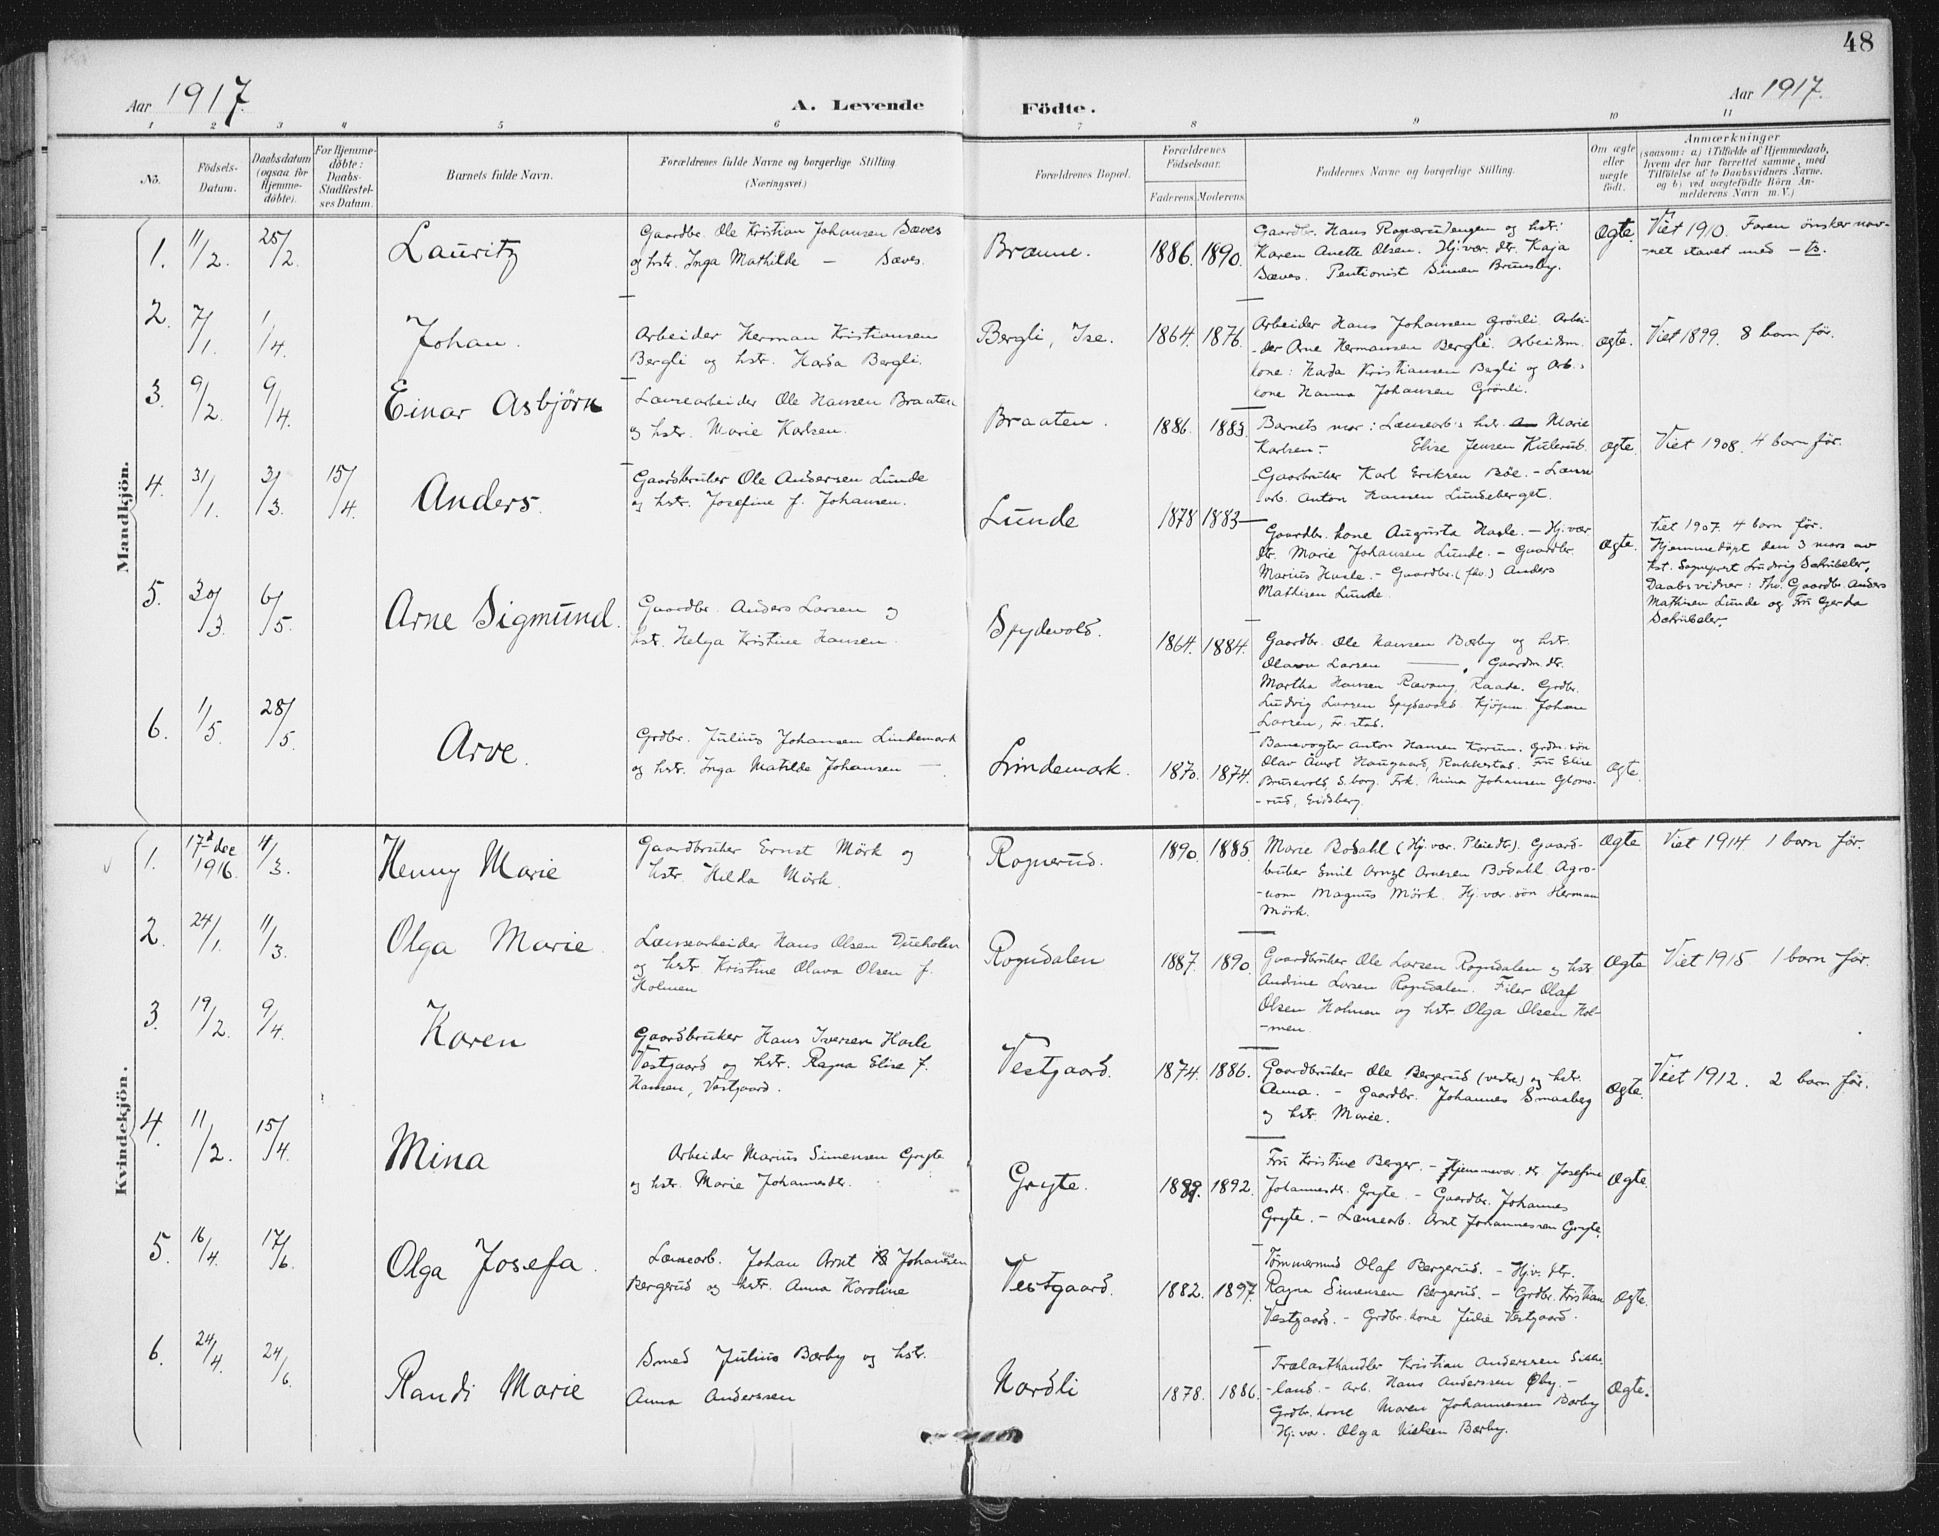 48
Aar 1917.
A. Levende Födte.
Aar 1917.
1 2 3 4 5 6 7 8 9 10 11
No.
Födsels-Datum.
Daabsdatum (ogsaa for Hjemme-döbte).
For Hjemme-döbte: Daabs-Stadfæstel-ses Datum.
Barnets fulde Navn.
Forældrenes fulde Navne og borgerlige Stilling (Næringsvei.)
Forældrenes Bopæl.
Forældrenes Födselsaar.
Faderens. Moderens.
Faddernes Navne og borgerlige Stilling.
Om ægte eller uægte födt.
Anmærkninger
(saasom: a) i Tilfælde af Hjemmedaab,
hvem der har forrettet samme, med
Tilföielse af to Daabsvidners Navne.
og b) ved uægtefödte Börn An-
melderens Navn m.V.)
Mandkjön.
1. 11/2. 25/2. Lauritz
Gaardbr. Ole Kristian Johansen Sæves
og hstr. Inga Mathilde — Sæves.
Brænne. 1886. 1890.
Gaardbr. Hans Rognerudengen og hstr:
Karen Anette Olsen. Hj.vær. dtr. Kaja
Sæves. Pentionist Simen Brunsby.
Ægte.
Viet 1910. Faren önsker nav-
-net stavet med — tz.
2. 7/1. 1/4. Johan.
Arbeider Herman Kristiansen
Bergli og hstr. Harda Bergli.
Bergli, Ise. 1864. 1876.
Arbeider Hans Johansen Grönli. Arbei-
-der Arne Hermansen Bergli. Arbeidsm.
kone: Harda Kristiansen Bergli og Arb.s
kone Hanna Johansen Grönli.
ægte. Viet 1899. 8 barn før.
3. 9/2. 9/4. Einar Asbjörn
Lænsearbeider Ole Hansen Braaten
og hstr. Marie Karlsen.
Braaten. 1886. 1883.
Barnets mor: Lænsearb.s hstr. Marie
Karlsen. — Elise Jensen Kulerud.
Gaarbruker Karl Eriksen Böe. — Lænse
arb. Anton Hansen Lundeberget.
ægte. Viet 1908. 4 barn før.
4. 31/1. 3/3. 15/4. Anders.
Gaardsbruker Ole Andersen Lunde
og hstr. Josefine f. Johansen.
Lunde 1878 1883
Gaardbr. kone Augusta Hasle. — Hj.vær
dtr. Marie Johansen Lunde. — Gaardbr.
Marius Hasle. — Gaardbr. (fho.) Anders
Mathisen Lunde.
Ægte.
Viet 1907. 4 barn før.
Hjemmedöpt den 3 mars av
kst. Sogneprst Ludvig Schübeler,
Daabsvidner: fho. Gaardbr. Anders
Mathisen Lunde og Fru Gerda
Schübeler.
5. 30/3. 6/5. Arne Sigmund.
Gaardbr. Anders Larsen og
hstr. Helga Kristine Hansen.
Spydevold. 1864. 1884.
Gaardbr. Ole Hansen Bærby og hstr.
Larsen — . Gaardm. dtr.
Martha Hansen Rævang, Raade. Grdbr.
Ludvig Larsen Spydevold. Kjöpm. Johan
Larsen, Fr.stad.
6. 1/5. 28/5. Arve.
Grdbr. Julius Johansen Lindemark
og hstr. Inga Matilde Johansen —.
Lindemark. 1870. 1874.
Banevogter Anton Hansen Grdm. sön
Olav Haugaard, Rakkestad. Fru Elise
Brusevold, S.borg. Frk. Mina Johansen Gloms-
-rud, Eidsberg.
ægte.
Kvindekjön.
1. 17de dec 1916. 4/3. Henny Marie
Gaardbruker Ernst Mörk og
hstr. Hilda Mörk.
Rognerud. 1890. 1885.
Marie Bodahl (Hj.vær. Pleiedtr). Gaard-
bruker Emil Arnesen Bodahl Agro-
-nom Magnus Mörk. Hj.vær. sön Herman
Mörk.
Ægte Viet 1914 1 barn før.
2. 24/1. 11/3. Olga Marie.
Lænsearbeider Hans Olsen
og hstr. Kristine Olava Olsen f.
Holmen
Rogndalen 1887. 1890.
Gaardbruker Ole Larsen Rogndalen og hstr.
Andrine Larsen Rogndalen. Filer Olaf
Olsen Holmen og hstr Olga Olsen Hol-
-men.
Ægte Viet 1915 1 barn før.
3. 19/2. 9/4. Karen
Gaardsbruker Hans Iversen Hasle
Vestgaard og hstr. Ragna Elise f.
Hansen, Vestgaard.
Vestgaard. 1874. 1886.
Gaardbruker Ole Bergerud (vestre) og hstr.
Anna. — Gaardbr. Johannes Smaaberg
og hstr. Marie.
Ægte. Viet 1912. 2 barn før.
4. 11/2. 15/4. Mina
Arbeider Marius Simensen Gryte
og hstr. Marie Johannesdtr.
Gryte. 1889. 1892.
Fru Kristine Berger. — Hjemmevær. dtr Josefine
Johannesdtr. Gryte. — Gaardbr. Johannes
Gryte. — Lænsearb. Arnt Johannessen Gryte.
Ægte.
5. 16/4. 17/6. Olga Josefa.
Lænsearb. Johan Arnt Johansen
Bergerud og hstr. Anna Karoline
Vestgaard. 1882. 1897.
Tømmermand Olaf Bergerud. — Hj.v. dtr.
Ragna Simensen Bergerud. — Grdbr. Kristian
Vestgaard. — Grdbr. kone Julie Vestgaard.
Ægte.
6. 24/4. 24/6. Randi Marie
Smed Julius Bærby og hstr.
Anna Anderssen
Nordli 1878. 1886.
Trælasthandler Kristian Anderssen Sikke-
-land. — Arb. Hans Anderssen Øby. —
Grdbr. kone Maren Johannessen Bærby
Hj.vær. Olga Nielsen Bærby.
Ægte.